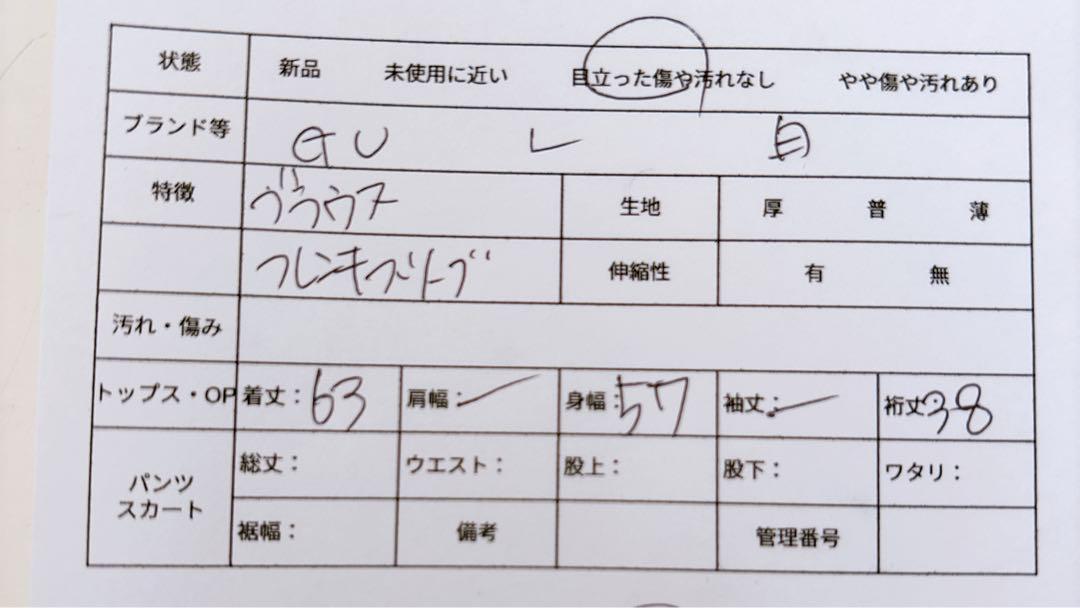 状態 新品 未使用に近い 目立った傷や汚れなし やや傷や汚れあり
ブランド等 GU L 白
特徴 生地 厚 普 薄
フレンチスリーブ 伸縮性 有 無
汚れ・傷み
トップス・OP 着丈：63 肩幅： 身幅：57 袖丈： 裄丈38
パンツ スカート 総丈： ウエスト： 股上： 股下： ワタリ：
裾幅： 備考 管理番号